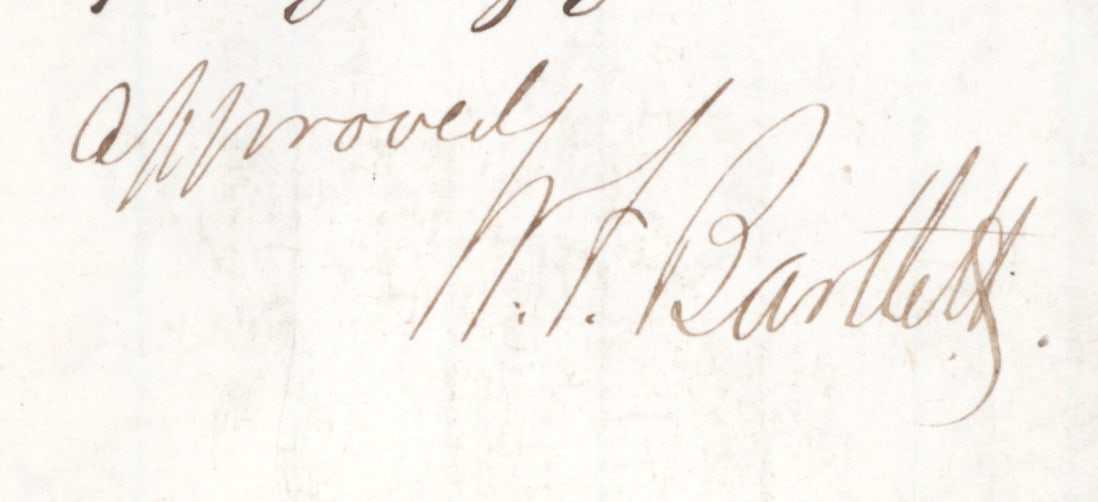 approved
W. F. Bartlett.